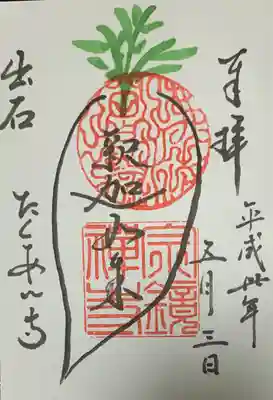 奉拝
平成卅年
五月三日
釈迦如来
宗鏡禅寺
出石
たくあん寺